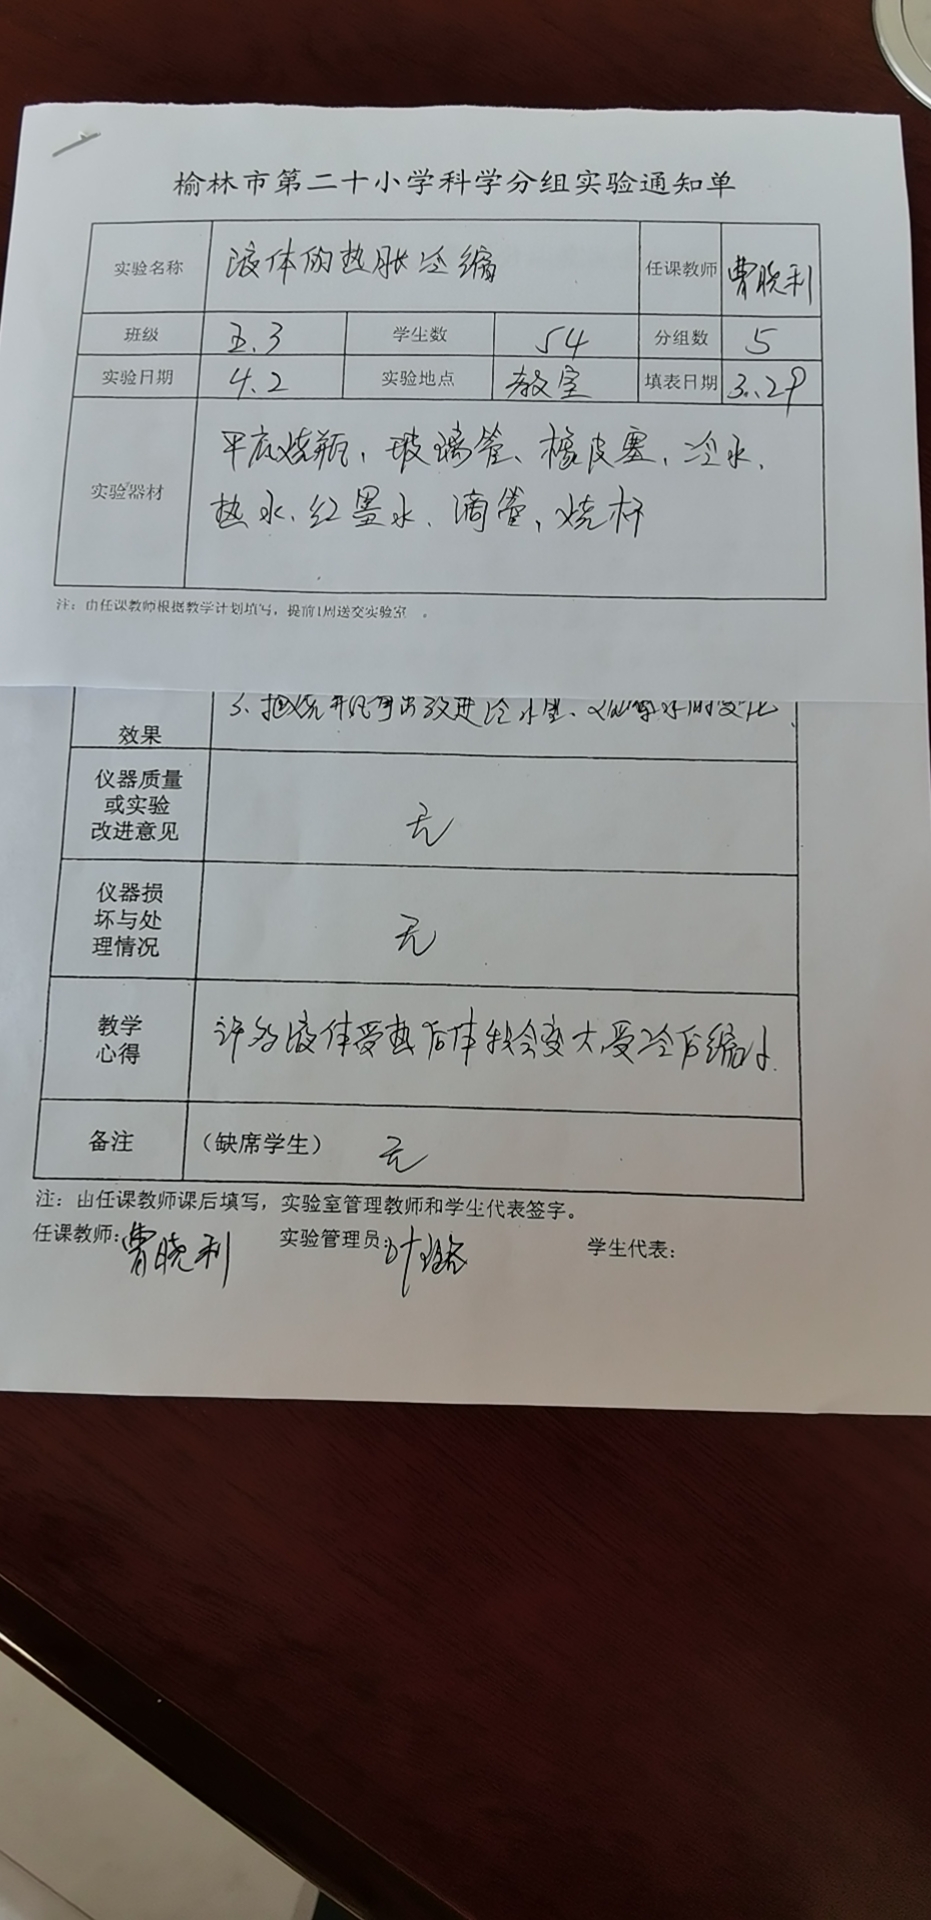 榆林市第二十小学科学分组实验通知单
实验名称 液体的热胀冷缩 任课教师 曹晓利
班级 五.3 学生数 54 分组数 5
实验日期 4.2 实验地点 教室 填表日期 3.29
实验器材 平底烧瓶、玻璃管、橡皮塞、冷水、
热水、红墨水、滴管、烧杯
注：由任课教师根据教学计划填写，提前1周送交实验室 。
3、把烧瓶
效果
仪器质量
或实验
改进意见
无
仪器损
坏与处
理情况
无
教学
心得
许多液体受热后体积会变大,受冷后缩小.
备注 （缺席学生） 无
注：由任课教师课后填写，实验室管理教师和学生代表签字。
任课教师：曹晓利 实验管理员： 学生代表：